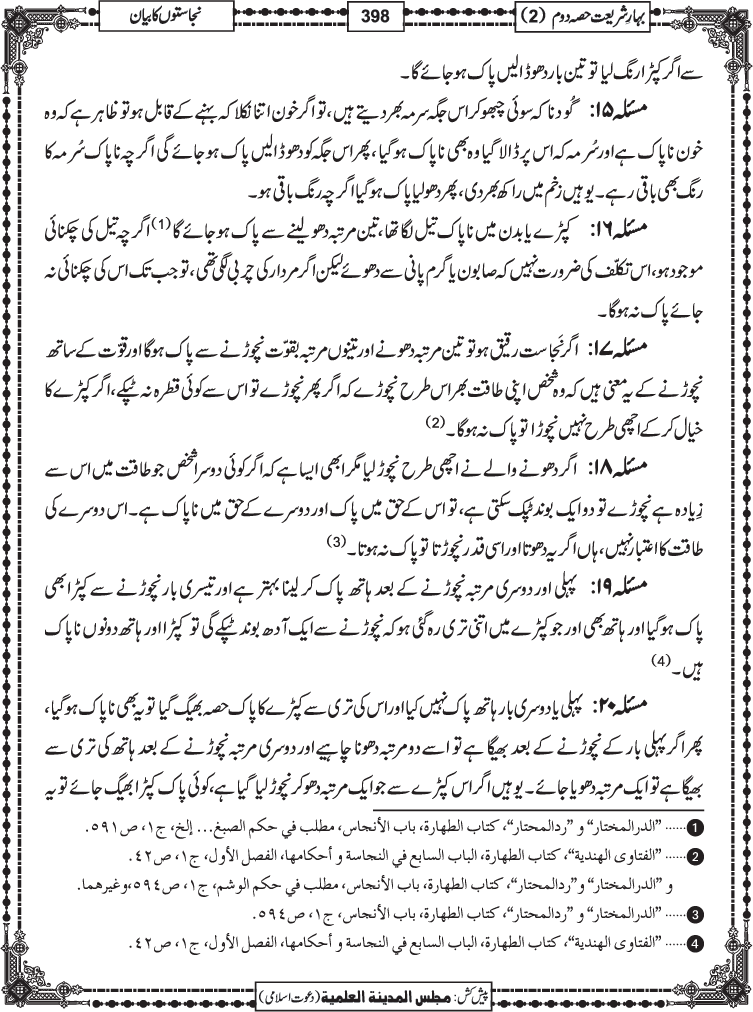 بہار شریعت حصہ دوم (2)
398
نجاستوں کا بیان
سے اگر کپڑا رنگ لیا تو تین بار دھو ڈالیں پاک ہو جائے گا۔
مسئلہ ۱۵: گُودنا کہ سوئی چبھو کر اس جگہ سرمہ بھر دیتے ہیں، تو اگر خون اتنا نکلا کہ بہنے کے قابل ہو تو ظاہر ہے کہ وہ
خون ناپاک ہے اور سُرمہ کہ اس پر ڈالا گیا وہ بھی ناپاک ہو گیا، پھر اس جگہ کو دھو ڈالیں پاک ہو جائے گی اگرچہ ناپاک سُرمہ کا
رنگ بھی باقی رہے۔ یوہیں زخم میں راکھ بھر دی، پھر دھو لیا پاک ہو گیا اگرچہ رنگ باقی ہو۔
مسئلہ ۱۶: کپڑے یا بدن میں ناپاک تیل لگا تھا، تین مرتبہ دھو لینے سے پاک ہو جائے گا (1) اگرچہ تیل کی چکنائی
موجود ہو، اس تکلّف کی ضرورت نہیں کہ صابون یا گرم پانی سے دھوئے لیکن اگر مردار کی چربی لگی تھی، تو جب تک اس کی چکنائی نہ
جائے پاک نہ ہوگا۔
مسئلہ ۱۷: اگر نَجاست رقیق ہو تو تین مرتبہ دھونے اور تینوں مرتبہ بقوّت نچوڑنے سے پاک ہوگا اور قوّت کے ساتھ
نچوڑنے کے یہ معنی ہیں کہ وہ شخص اپنی طاقت بھر اس طرح نچوڑے کہ اگر پھر نچوڑے تو اس سے کوئی قطرہ نہ ٹپکے، اگر کپڑے کا
خیال کر کے اچھی طرح نہیں نچوڑا تو پاک نہ ہوگا۔ (2)
مسئلہ ۱۸: اگر دھونے والے نے اچھی طرح نچوڑ لیا مگر ابھی ایسا ہے کہ اگر کوئی دوسرا شخص جو طاقت میں اس سے
زِیادہ ہے نچوڑے تو دو ایک بوند ٹپک سکتی ہے، تو اس کے حق میں پاک اور دوسرے کے حق میں ناپاک ہے۔ اس دوسرے کی
طاقت کا اعتبار نہیں، ہاں اگر یہ دھوتا اور اسی قدر نچوڑتا تو پاک نہ ہوتا۔ (3)
مسئلہ ۱۹: پہلی اور دوسری مرتبہ نچوڑنے کے بعد ہاتھ پاک کر لینا بہتر ہے اور تیسری بار نچوڑنے سے کپڑا بھی
پاک ہو گیا اور ہاتھ بھی اور جو کپڑے میں اتنی تری رہ گئی ہو کہ نچوڑنے سے ایک آدھ بوند ٹپکے گی تو کپڑا اور ہاتھ دونوں ناپاک
ہیں۔ (4)
مسئلہ ۲۰: پہلی یا دوسری بار ہاتھ پاک نہیں کیا اور اس کی تری سے کپڑے کا پاک حصہ بھیگ گیا تو یہ بھی ناپاک ہو گیا،
پھر اگر پہلی بار کے نچوڑنے کے بعد بھیگا ہے تو اسے دو مرتبہ دھونا چاہیے اور دوسری مرتبہ نچوڑنے کے بعد ہاتھ کی تری سے
بھیگا ہے تو ایک مرتبہ دھویا جائے۔ یوہیں اگر اس کپڑے سے جو ایک مرتبہ دھو کر نچوڑ لیا گیا ہے، کوئی پاک کپڑا بھیگ جائے تو یہ
1 ...... "الدرالمختار" و "ردالمحتار"، كتاب الطهارة، باب الأنجاس، مطلب في حكم الصبغ... إلخ، ج۱، ص۵۹۱.
2 ...... "الفتاوى الهندية"، كتاب الطهارة، الباب السابع في النجاسة و أحكامها، الفصل الأول، ج۱، ص۴۲.
و "الدرالمختار" و"ردالمحتار"، كتاب الطهارة، باب الأنجاس، مطلب في حكم الوشم، ج۱، ص۵۹۴، وغيرهما.
3 ...... "الدرالمختار" و "ردالمحتار"، كتاب الطهارة، باب الأنجاس، ج۱، ص۵۹۴.
4 ...... "الفتاوى الهندية"، كتاب الطهارة، الباب السابع في النجاسة و أحكامها، الفصل الأول، ج۱، ص۴۲.
پیش کش: مجلس المدينة العلمية (دعوت اسلامی)